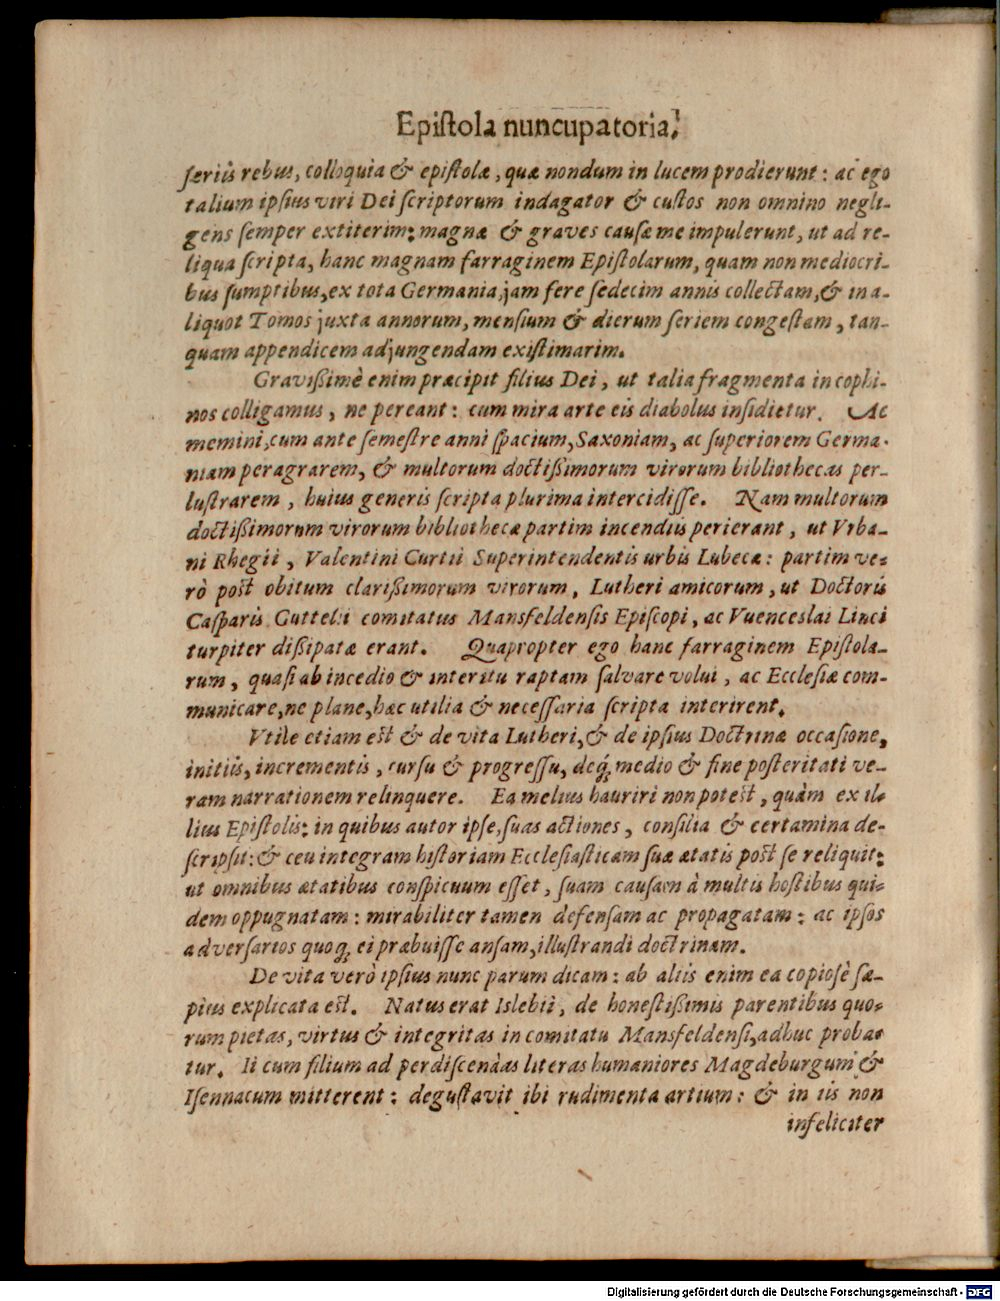 Epiſtola nuncupatoria,
ſeriis rebus, colloquia & epiſtolæ, quæ nondum in lucem prodierunt: ac ego
talium ipſius viri Dei ſcriptorum indagator & cuſtos non omnino negli-
gens ſemper extiterim; magnæ & graves cauſæ me impulerunt, ut ad re-
liqua ſcripta, hanc magnam farraginem Epiſtolarum, quam non mediocri-
bus ſumptibus, ex tota Germania, jam fere ſedecim annis collectam, & in a-
liquot Tomos juxta annorum, menſium & dierum ſeriem congeſtam, tan-
quam appendicem adjungendam exiſtimarim.
Gravißimè enim præcipit filius Dei, ut talia fragmenta in cophi-
nos colligamus, ne pereant: cum mira arte eis diabolus inſidietur. Ac
memini, cum ante ſemeſtre anni ſpacium, Saxoniam, ac ſuperiorem Germa-
niam peragrarem, & multorum doctißimorum virorum bibliothecas per-
luſtrarem, huius generis ſcripta plurima intercidiſſe. Nam multorum
doctißimorum virorum bibliothecæ partim incendiis perierant, ut Vrba-
ni Rhegii, Valentini Curtii Superintendentis urbis Lubecæ: partim ve-
rò poſt obitum clarißimorum virorum, Lutheri amicorum, ut Doctoris
Caſparis Guttelii comitatus Mansfeldenſis Epiſcopi, ac Vuenceslai Linci
turpiter dißipatæ erant. Quapropter ego hanc farraginem Epiſtola-
rum, quaſi ab incedio & interitu raptam ſalvare volui, ac Eccleſiæ com-
municare, ne plane, hæc utilia & neceſſaria ſcripta interirent.
Vtile etiam eſt & de vita Lutheri, & de ipſius Doctrinæ occaſione,
initiis, incrementis, curſu & progreſſu, deq́; medio & fine poſteritati ve-
ram narrationem relinquere. Ea melius hauriri non poteſt, quàm ex il-
lius Epiſtolis: in quibus autor ipſe, ſuas actiones, conſilia & certamina de-
ſcripſit: & ceu integram hiſtoriam Eccleſiaſticam ſuæ ætatis poſt ſe reliquit;
ut omnibus ætatibus conſpicuum eſſet, ſuam cauſam à multis hoſtibus qui-
dem oppugnatam: mirabiliter tamen defenſam ac propagatam: ac ipſos
adverſarios quoq́; ei præbuiſſe anſam, illuſtrandi doctrinam.
De vita verò ipſius nunc parum dicam: ab aliis enim ea copioſè ſæ-
pius explicata eſt. Natus erat Islebii, de honeſtißimis parentibus quo-
rum pietas, virtus & integritas in comitatu Mansfeldenſi, adhuc proba-
tur. Ii cum filium ad perdiſcendas literas humaniores Magdeburgum &
Iſennacum mitterent: deguſtavit ibi rudimenta artium: & in iis non
infeliciter
Digitalisierung gefördert durch die Deutsche Forschungsgemeinschaft - DFG